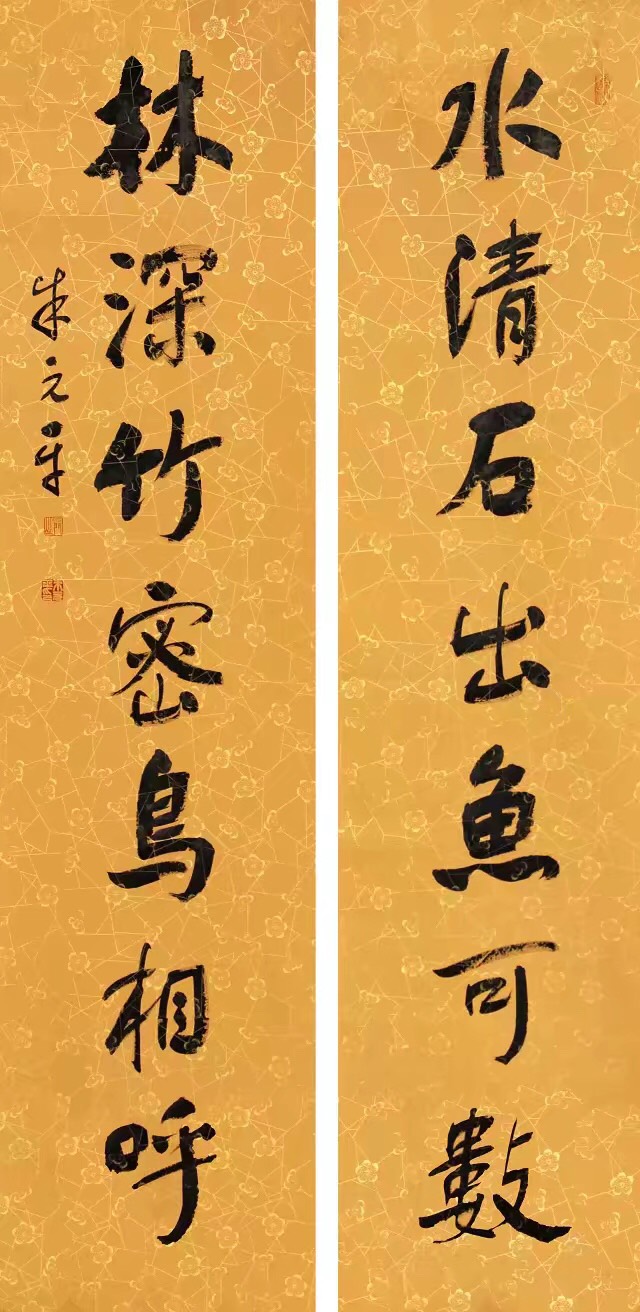 水清石出魚可數
林深竹密鳥相呼
朱元平